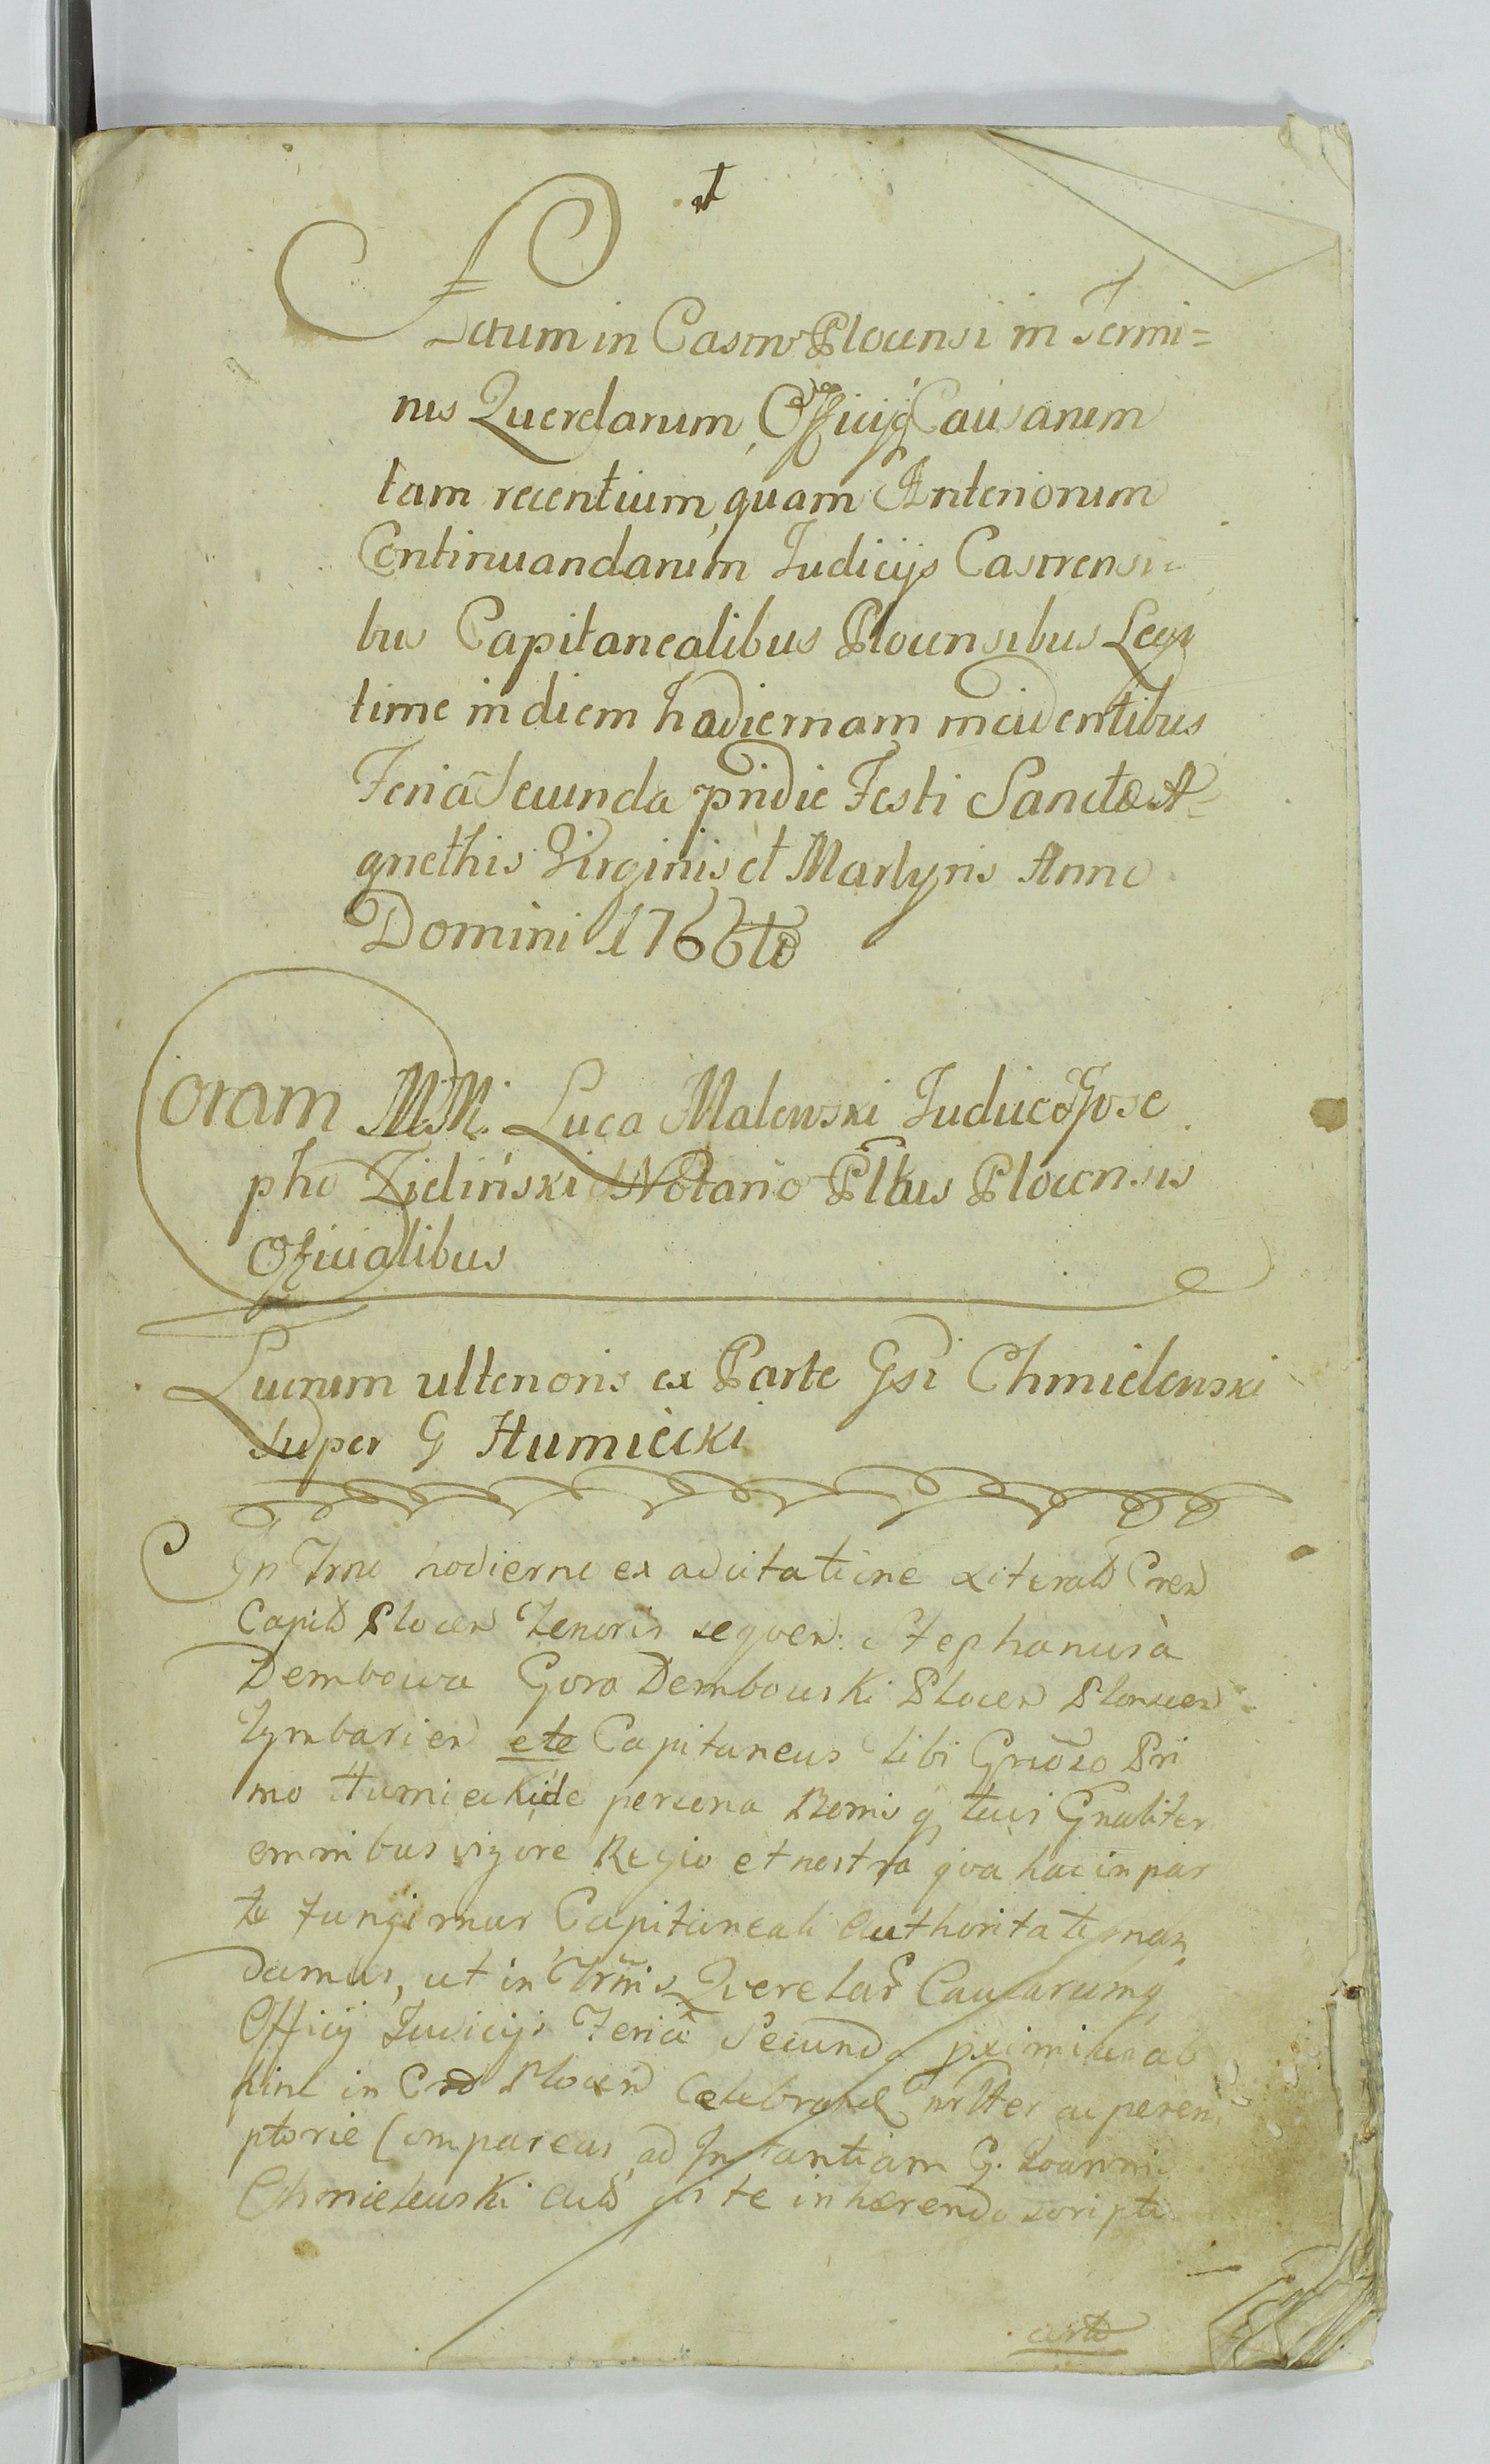 Actum in Castro Plocensi in Termi=
nis Querelarum, Officijq Causarum
tam recentium, quam Anteriorum
Continuandarum Iudicijs Castrensi=
bus Capitanealibus Plocensibus Legi
time in diem hodiernam incidentibus
Feria Secunda pridie Festi Sanctæ A=
gnethis Virginis et Martyris Anno
Domini 1766to
Coram MM. Luca Malewski Iudice Jose
pho Zieliński Notario Plbus Plocensis
Oficialibus
Lucrum ulterioris ex Parte Gsi Chmielewski
super G Humiecki
In Trno hodierno ex adcitatione Literals Cren
Capits Plocen Tenoris sequen: Stephanus à
Dembowa Gora Dembowski Plocen Plonscen
Tymbarien etc Capitaneus tibi Groso Pri
mo Humiecki de persona Bonis q tuis Gnaliter
omnibus vigore Regio et nostra qva hac in par
te fungimur Capitaneali Authoritate man
damus, ut in Trnis Qverelar Causarumq
Officij Iudicijs Feria Secunda pximius ab
hinc in Cro Plocen Celebrand prltter ac peren
ptorie Compareas ad Instantiam G. Ioannis
Chmielewski Acts qui te inhærendo scripto
certo